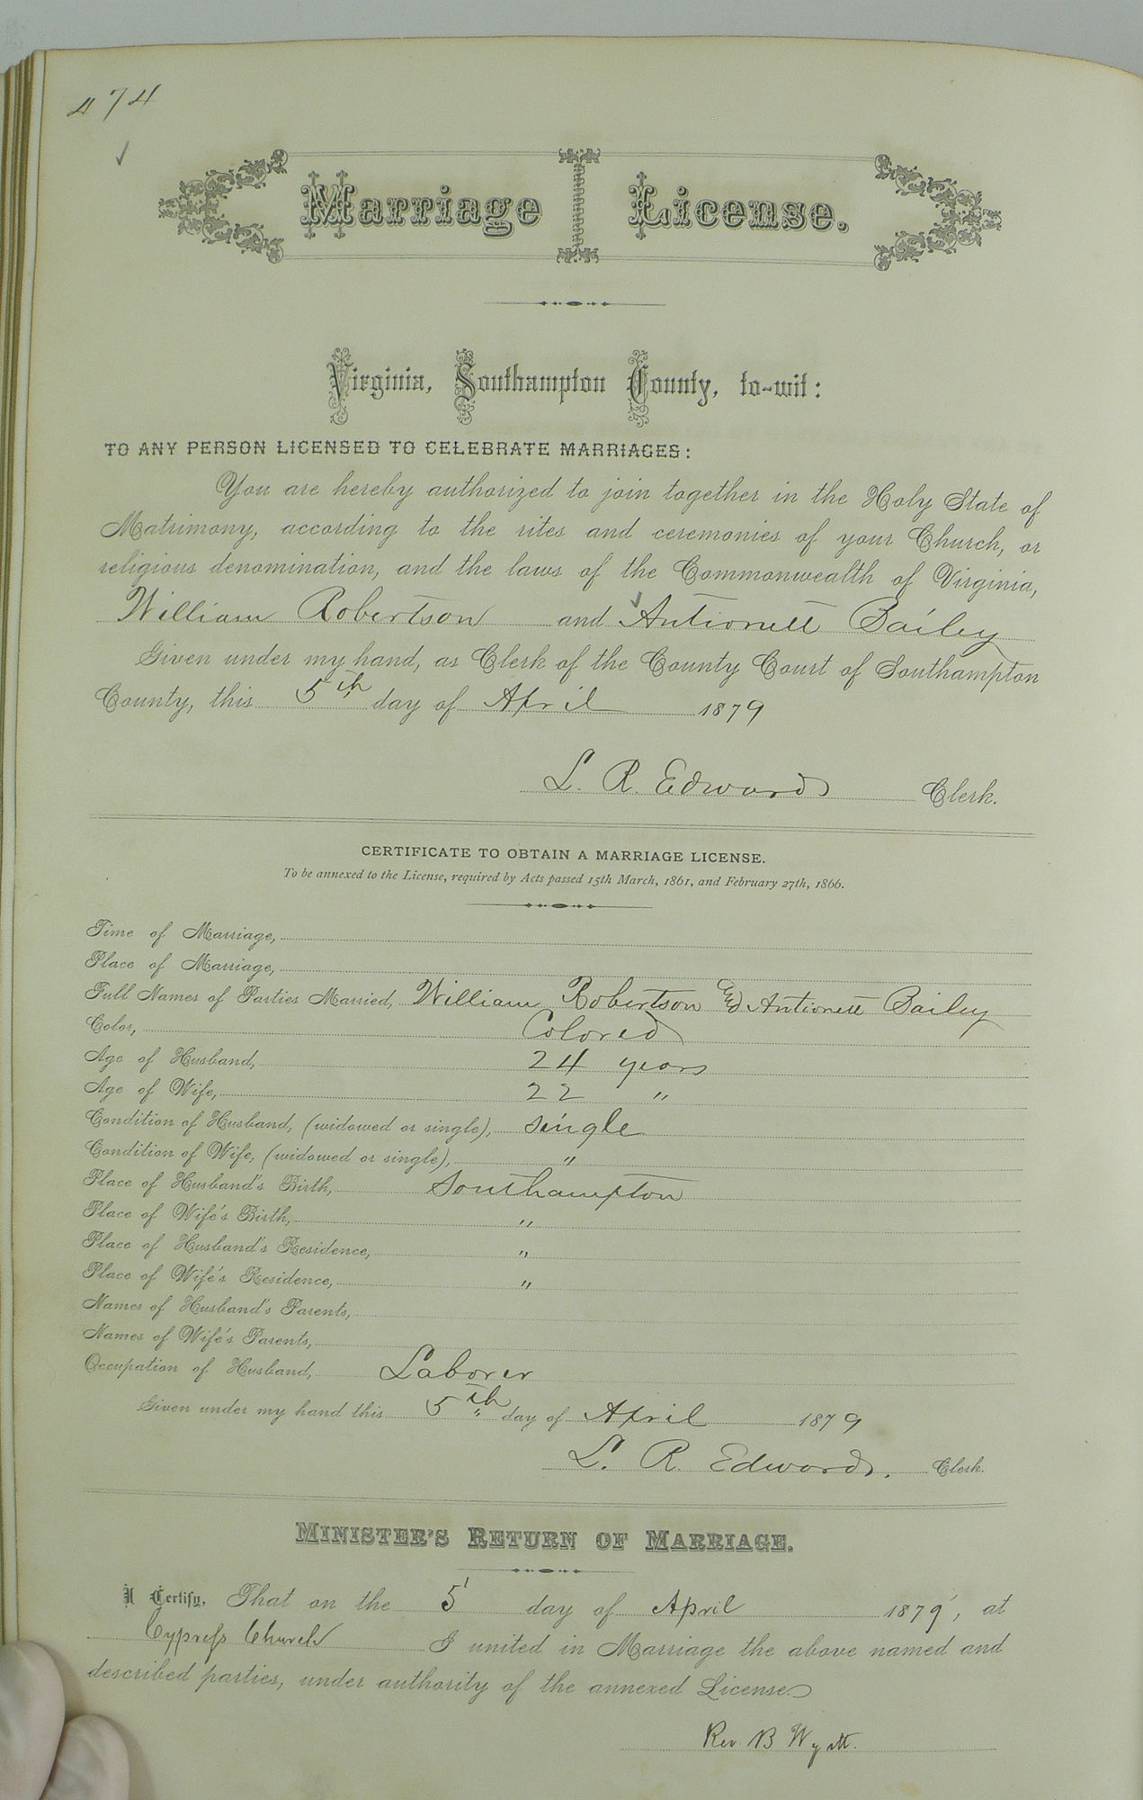 474
Marriage License.
Virginia, Southampton County, to-wit:
TO ANY PERSON LICENSED TO CELEBRATE MARRIAGES:
You are hereby authorized to join together in the Holy State of
Matrimony, according to the rites and ceremonies of your Church, or
religious denomination, and the laws of the Commonwealth of Virginia,
William Robertson and Antionett Bailey
Given under my hand, as Clerk of the County Court of Southampton
County, this 5th day of April 1879
L. R. Edwards Clerk.
CERTIFICATE TO OBTAIN A MARRIAGE LICENSE.
To be annexed to the License, required by Acts passed 15th March, 1861, and February 27th, 1866.
Time of Marriage,
Place of Marriage,
Full Names of Parties Married, William Robertson and Antionett Bailey
Color, Colored
Age of Husband, 24 years
Age of Wife, 22 "
Condition of Husband, (widowed or single), single
Condition of Wife, (widowed or single), "
Place of Husband's Birth, Southampton
Place of Wife's Birth, "
Place of Husband's Residence, "
Place of Wife's Residence, "
Names of Husband's Parents,
Names of Wife's Parents,
Occupation of Husband, Laborer
Given under my hand this 5th day of April 1879
L. R. Edwards. Clerk.
MINISTER'S RETURN OF MARRIAGE.
I Certify, That on the 5 day of April 1879, at
Cypress Church I united in Marriage the above named and
described parties, under authority of the annexed License.
Rev B Wyatt.